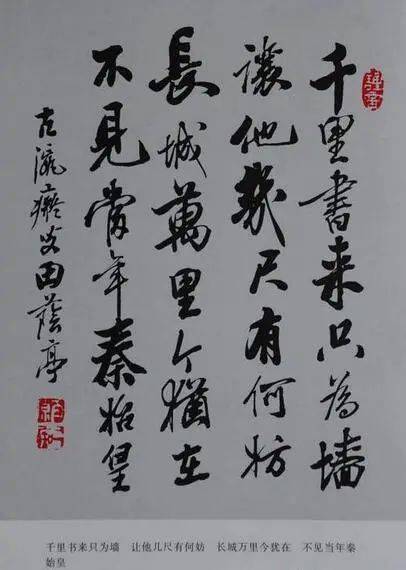 千里書来只為墻
讓他幾尺有何妨
長城萬里今猶在
不見當年秦始皇
古瀛癡叟田蔭亭
千里书来只为墙　让他几尺有何妨　长城万里今犹在　不见当年秦
始皇